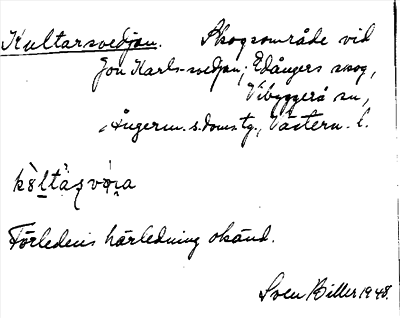 Kultarsvedjan. Skogsområde vid
Jon Karls-svedjan; Edångers skog,
Vibyggerå sn,
Ångerm. s. doms.tg., Västern. l.
Förledens härledning okänd.
Sven Biller 1948.